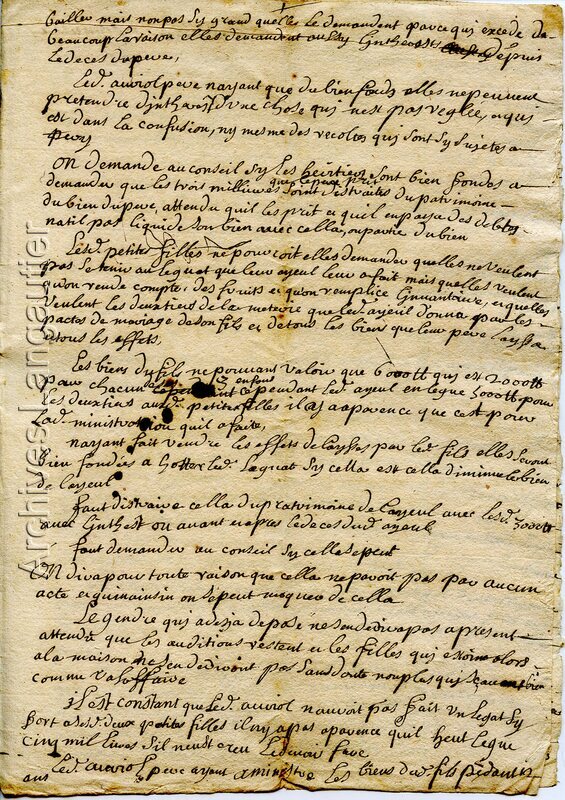 bailler mais non pas sy grand quelles le demandent parce qui excede de
beaucoup la raison elles demandent aussy Linthenest depuis
le deces du pere,
Led. auriol pere nayant que du bien fonds elles ne peuvent
pretendre dintharest dune chose qui nest pas reglee, et qui
est dans la confusion, ny mesme des recoltes qui sont sy sujetes a
On demande au conseil sy les heirtiers sont bien fondes a
demander que les trois mil livres que le pere prit soint distraites du patrimoine
du bien du pere, attendu quil les prit et quil en paya des debtes
natil pas liquide son bien avec cella, ou partie du bien
Lesd. petites filles ne pouroit elles demander quelles ne veulent
pas se tenir au legat que leur ayeul leur a fait mais quelles veulent
quon rende compte des fruits et quon remplice Linvantoire, et quelles
veulent les deux tiers de la que led. ayeul donna par les
pactes de mariage de son fils et de tous les biens que leur pere laissa
et tous les effets.
Les biens du fils ne pouvant valoir que 6000tt qui est 2000tt
pour chacun 3 enfans cependant led. ayeul en legue 3000tt pour
les deux tiers ausd. petites filles il a aparence que cest pour
lad. ministration quil a faite,
nayant fait vendre les effets de laysses par led. fils elles seront
bien fondées a led. legat sy cella est cella diminue le bien
de layeul
faut distraire cella du patrimoine de layeul avec lesd. 3000tt
avec Linthest ou avant et apres le deces dud. ayeul
faut demander au conseil sy celle se peut
On dira pour toute raison que cella ne paroit pas par aucun
acte et quainsin on se peut moquer de cella
Le gendre qui a desja depose ne sen dedira pas apresent
attendu que les auditions restent et les filles qui estoint alors
a la maison ne sen dediront pas sans doute non plus qui scavent bien
comme va laffaire
Il est constant que led. auriol nauroit pas fait un legat sy
fort a sesd. deux petites filles il ny a pas aparence quil heut legue
cinq mil livres sil neust creu le devoir faire
Led. auriol pere ayant aministre les biens de son fils pendant 12
ans
Archives Langautier